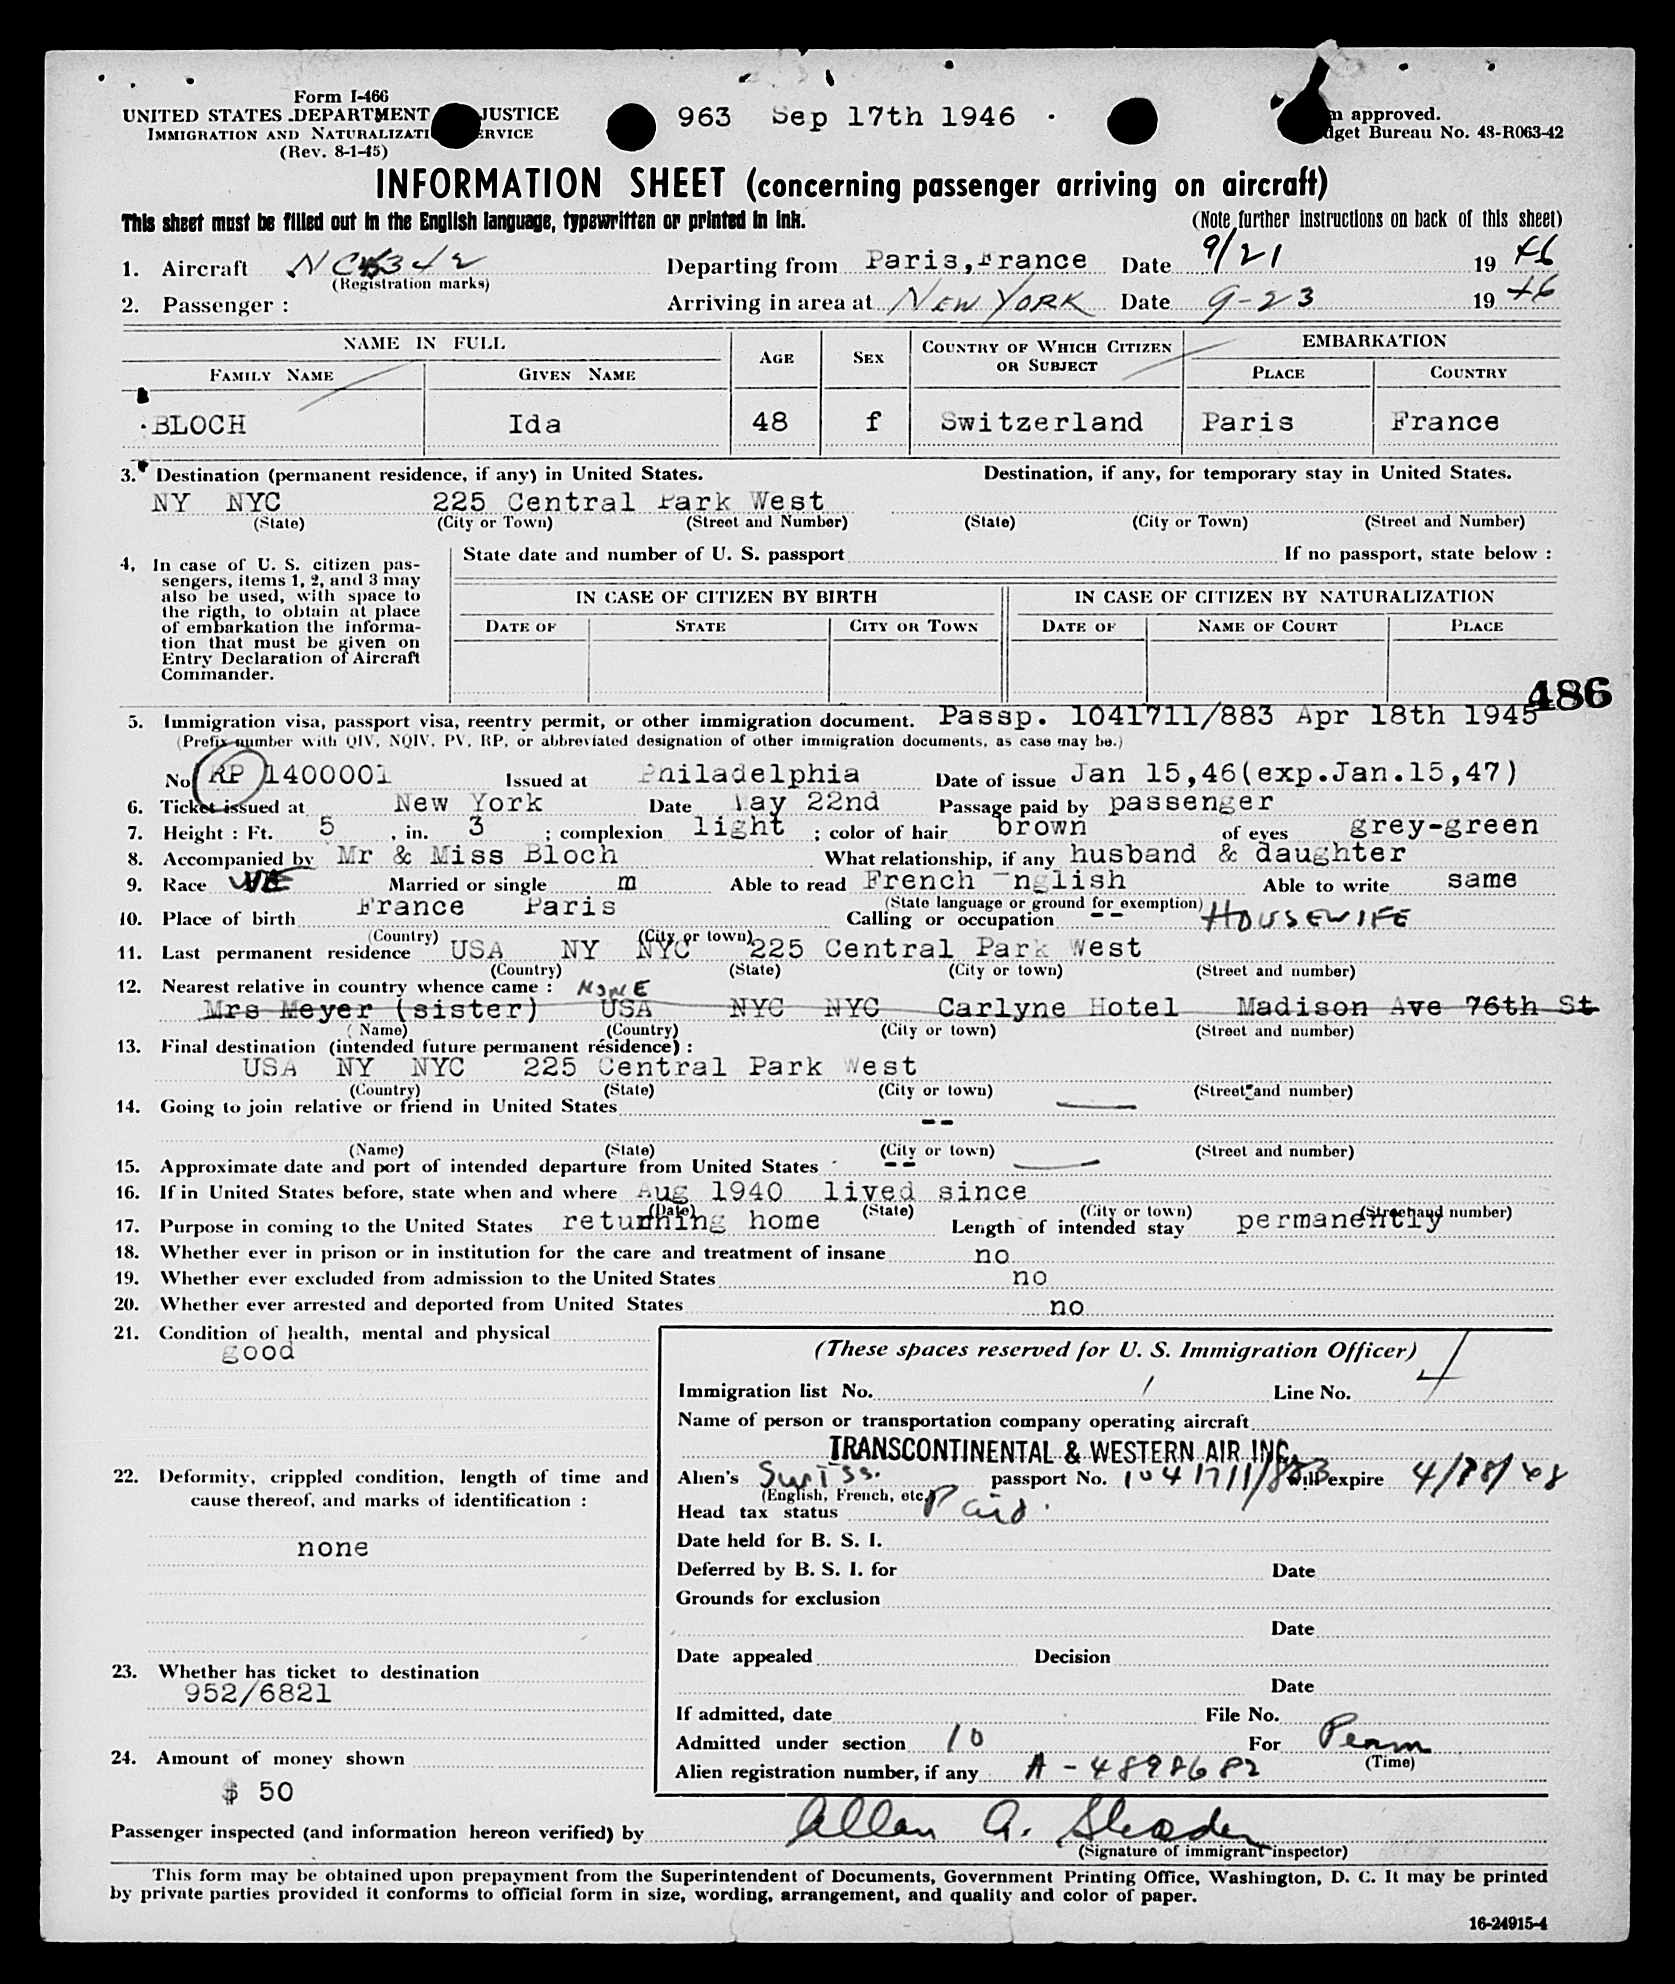 Form I-466
UNITED STATES DEPARTMENT JUSTICE
IMMIGRATION AND NATURALIZATI ERVICE
(Rev. 8-1-45)
963 Sep 17th 1946
m approved.
dget Bureau No. 43-R063-42
INFORMATION SHEET (concerning passenger arriving on aircraft)
This sheet must be filled out in the English language, typewritten or printed in ink.
(Note further instructions on back of this sheet)
1. Aircraft Departing from Paris, France Date 9/21 19 46
(Registration marks)
2. Passenger : Arriving in area at NEW YORK Date 9-23 19 46
NAME IN FULL AGE SEX COUNTRY OF WHICH CITIZEN OR SUBJECT EMBARKATION
FAMILY NAME GIVEN NAME PLACE COUNTRY
BLOCH Ida 48 f Switzerland Paris France
3. Destination (permanent residence, if any) in United States. Destination, if any, for temporary stay in United States.
NY NYC 225 Central Park West
(State) (City or Town) (Street and Number) (State) (City or Town) (Street and Number)
4. In case of U. S. citizen pas-
sengers, items 1, 2, and 3 may
also be used, with space to
the rigth, to obtain at place
of embarkation the informa-
tion that must be given on
Entry Declaration of Aircraft
Commander.
State date and number of U. S. passport If no passport, state below :
IN CASE OF CITIZEN BY BIRTH IN CASE OF CITIZEN BY NATURALIZATION
DATE OF STATE CITY OR TOWN DATE OF NAME OF COURT PLACE
486
5. Immigration visa, passport visa, reentry permit, or other immigration document. Passp. 1041711/883 Apr 18th 1945
(Prefix number with QIV, NQIV, PV, RP, or abbreviated designation of other immigration documents, as case may be.)
No RP 1400001 Issued at Philadelphia Date of issue Jan 15,46(exp.Jan.15,47)
6. Ticket issued at New York Date May 22nd Passage paid by passenger
7. Height : Ft. 5 , in. 3 ; complexion light ; color of hair brown of eyes grey-green
8. Accompanied by Mr & Miss Bloch What relationship, if any husband & daughter
9. Race Married or single m Able to read French English Able to write same
(State language or ground for exemption)
10. Place of birth France Paris Calling or occupation -- HOUSEWIFE
(Country) (City or town)
11. Last permanent residence USA NY NYC 225 Central Park West
(Country) (State) (City or town) (Street and number)
12. Nearest relative in country whence came : NONE
Mrs Meyer (sister) USA NYC NYC Carlyne Hotel Madison Ave 76th St
(Name) (Country) (City or town) (Street and number)
13. Final destination (intended future permanent résidence) :
USA NY NYC 225 Central Park West
(Country) (State) (City or town) (Street and number)
14. Going to join relative or friend in United States
--
(Name) (State) (City or town) (Street and number)
15. Approximate date and port of intended departure from United States --
16. If in United States before, state when and where Aug 1940 lived since
(Date) (State) (City or town) (Street and number)
17. Purpose in coming to the United States returning home Length of intended stay permanently
18. Whether ever in prison or in institution for the care and treatment of insane no
19. Whether ever excluded from admission to the United States no
20. Whether ever arrested and deported from United States no
21. Condition of health, mental and physical
good
22. Deformity, crippled condition, length of time and
cause thereof, and marks of identification :
none
23. Whether has ticket to destination
952/6821
24. Amount of money shown
$ 50
(These spaces reserved for U. S. Immigration Officer)
Immigration list No. 1 Line No. 4
Name of person or transportation company operating aircraft
TRANSCONTINENTAL & WESTERN AIR INC.
Alien's Swiss. passport No. 1041711/883 will expire 4/18/48
(English, French, etc.)
Head tax status Paid.
Date held for B. S. I.
Deferred by B. S. I. for Date
Grounds for exclusion
Date
Date appealed Decision
Date
If admitted, date File No.
Admitted under section 10 For Perm
(Time)
Alien registration number, if any A-4898682
Passenger inspected (and information hereon verified) by Allan A.
(Signature of immigrant inspector)
This form may be obtained upon prepayment from the Superintendent of Documents, Government Printing Office, Washington, D. C. It may be printed
by private parties provided it conforms to official form in size, wording, arrangement, and quality and color of paper.
16-24915-4